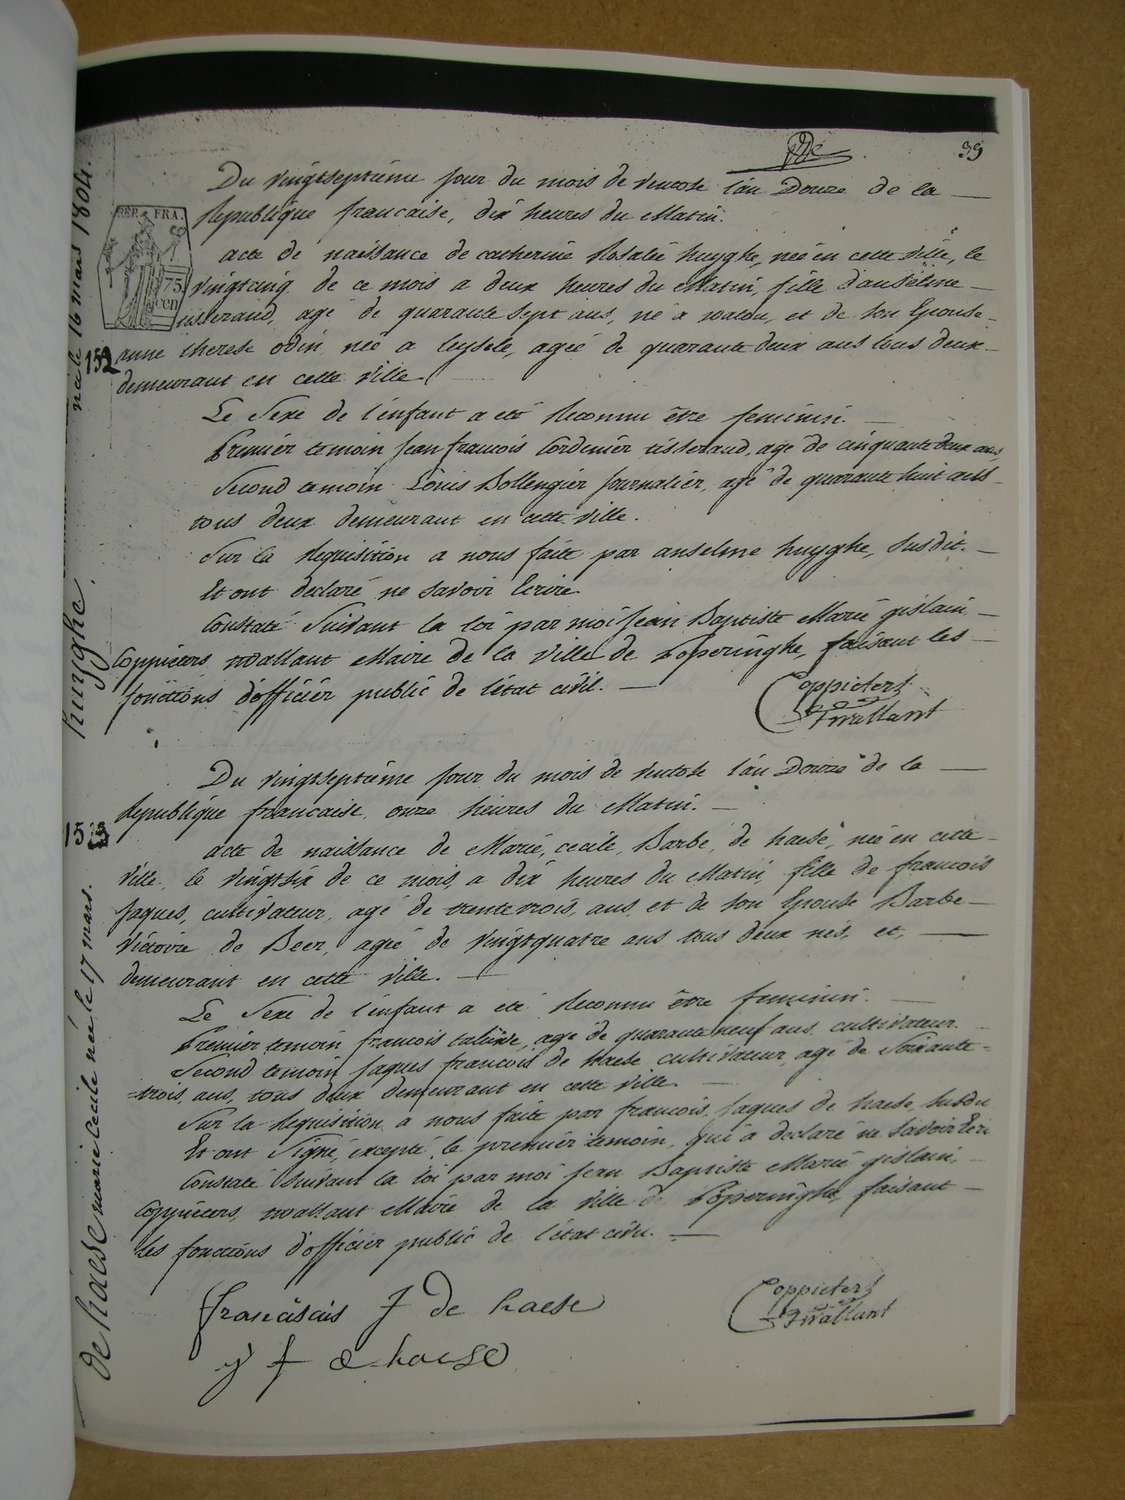 39
Du vingtseptième jour du mois de ventose l'an Douze de la
Republique francaise, dix heures du Matin.
acte de naissance de catherine Rosalie huyghe, née en cette ville, le
vingtcinq de ce mois a deux heures du Matin, fille d'anselme
tisserand, agé de quarante sept ans, né a watou, et de son Epouse
anne therese odin née a leysele, ageé de quarante deux ans tous deux
demeurant en cette ville.
Le Sexe de l'enfant a eté Reconnu être feminin.
Premier temoin jean francois Cordenier tisserand, age de cinquante deux ans,
Second temoin Louis Bollengier journalier, agé de quarante huit ans
tous deux demeurant en cette ville.
Sur la Requisition a nous faite par anselme huyghe, susdit.
Et ont declaré ne savoir Ecrire
Constaté Suivant la loi par moi Jean Baptiste Marie gislain
Coppieters wallant Maire de la ville de Poperinghe, faisant les
fonctions d'officier public de l'état civil.
Coppieters
Twallant
Du vingtseptième jour du mois de ventose l'an Douze de la
Republique francaise, onze heures du Matin.
acte de naissance de Marie, cecile, Barbe, de haese, née en cette
ville, le vingtsix de ce mois, a dix heures du Matin, fille de francois
jaques, cultivateur, agé de trente trois, ans, et de son Epouse Barbe
Victoire de Beer, ageé de vingtquatre ans tous deux nés, et,
demeurant en cette ville.
Le Sexe de l'enfant a eté Reconnu être feminin.
Premier temoin francois age de quarante neuf ans, cultivateur.
Second temoin jaques francois de haese cultivateur, agé de Soixante
trois, ans, tous deux demeurant en cette ville.
Sur la Requisition a nous faite par francois, jaques de haese, susdit
Et ont Signé, excepté, le premier temoin, qui a declaré ne savoir Ecri
Constaté Suivant la loi par moi Jean Baptiste Marie gislain,
Coppieters, wallant Maire de la ville de Poperinghe, faisant
les fonctions d'officier public de l'état civil.
franciscus J de haese
Coppieters
Twallant
j f d haese
REP. FRA.
75
cen
152
née le 16 mars 1804.
huyghe
153
de haese marie cecile née le 17 mars.